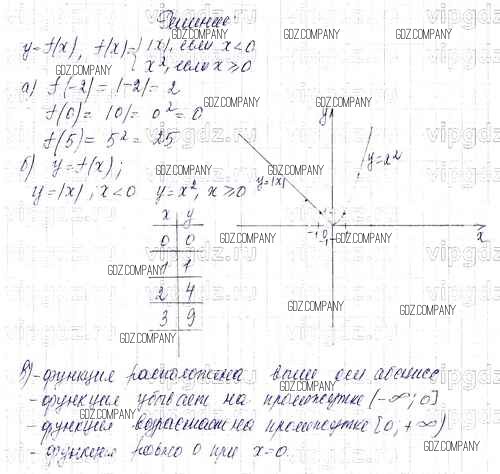 Решение:
y=f(x), f(x)={|x|, если x<0
x², если x≥0
а) f(-2)=|-2|=2
f(0)=|0|=0²=0
f(5)=5²=25
б) y=f(x);
y=|x|, x<0 y=x², x≥0
x y
0 0
1 1
2 4
3 9
y
y=x²
y=|x|
-1 0
x
в) - функция расположена выше оси абсцисс
- функция убывает на промежутке (-∞; 0]
- функция возрастает на промежутке [0; +∞)
- функция равна 0 при x=0.
GDZ.COMPANY
vipgdz.ru